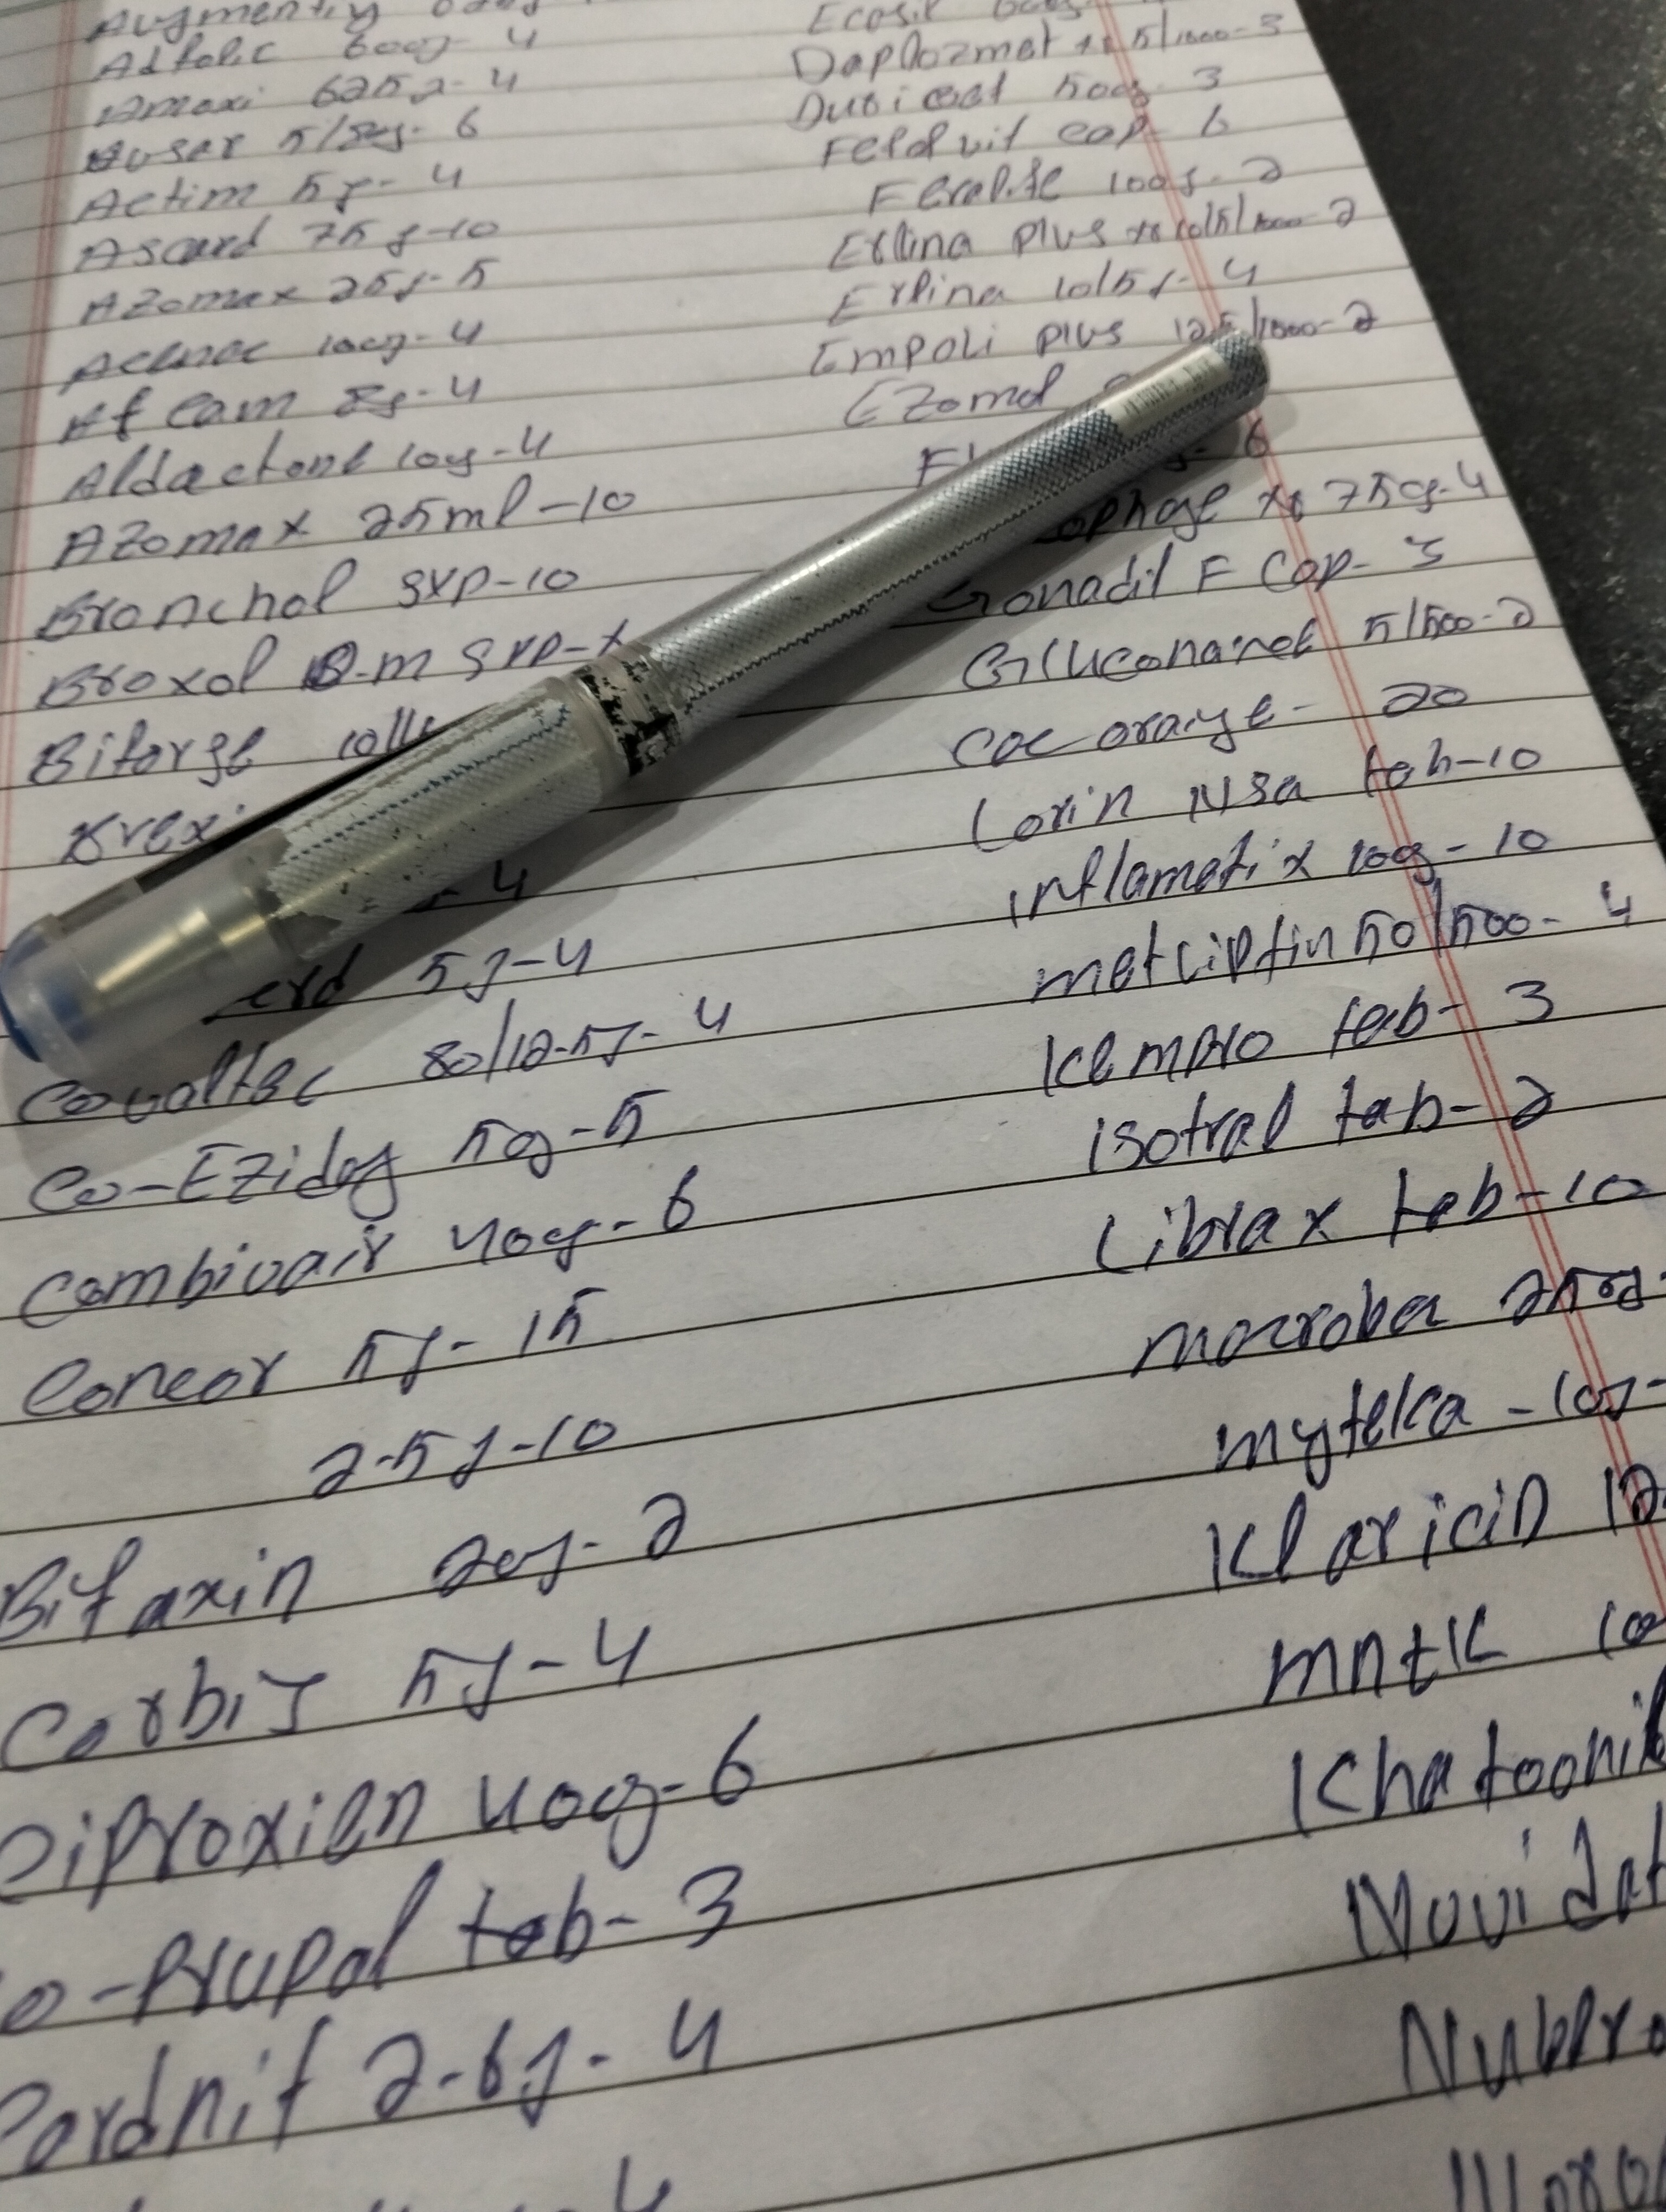 Adfolic 600g- 4
Amaxi 625g- 4
Auser 5/80g- 6
Actim 5g- 4
Ascard 75g-10
AZomax 25g-5
100g-4
Af cam 8g-4
Aldactone 10g-4
AZomax 25ml-10
Bronchol syp-10
Broxol D-m syp-
Biforge
-4
5g-4
Covaltec 80/12.5g- 4
Co-Ezidog 50g-5
Combivair 400g- 6
Concor 5g- 15
2.5g-10
Bifaxin 20g- 2
Corbis 5g-4
Ciproxien 400g-6
o-Prupal tab- 3
Cardnit 2.6g- 4
4
Ecosil
Daplozmet xr 5/1000-3
500g- 3
Feldvit cap- 6
Ferolife 100g- 2
Erlina plus xr 10/5/1000-2
Erlina 10/5g- 4
Empoli plus 12.5/1000-2
EZomol
6
ophage xr 750g-4
Gonadil F Cap- 3
Gluconamet 5/500-2
Cac orange- 20
Lorin Nsa tab-10
inflamatix 10g- 10
metliptin 50/500- 4
Kempro tab- 3
isotral tab- 2
Librax tab-10
macrobac 250g-
myteka - 10g-
Klaricin
mntk 10
Khatoonil
Novidat
Nubero